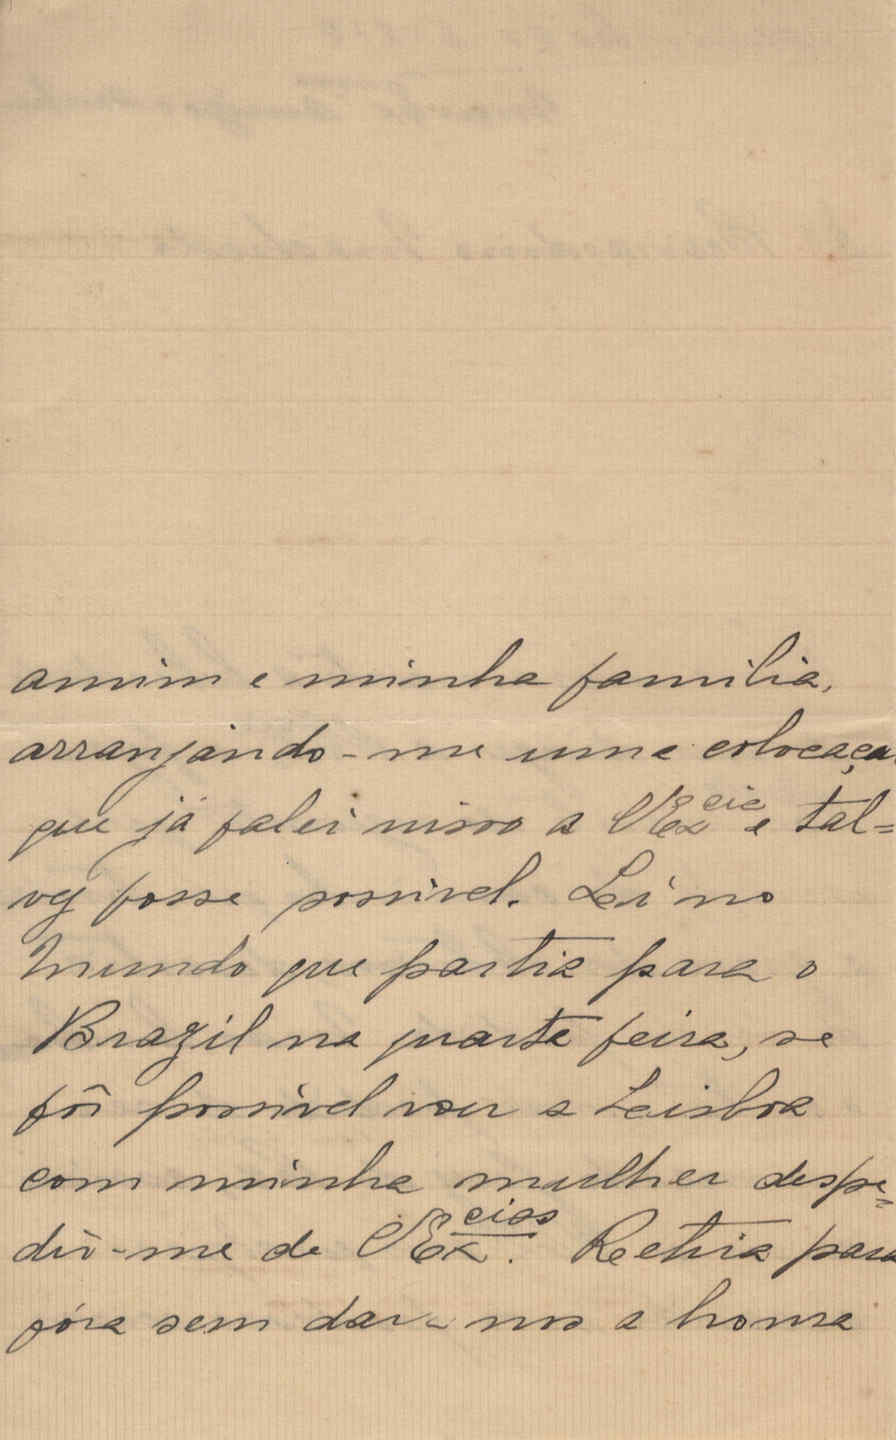 amim e minha familia,
arranjando-me uma colocaçao
que já falei nisso a VEx^cia e tal=
vez fosse possivel. Li no
Mundo que partia para o
Brazil na quarta feira, se
fôr possivel vou a Leisboa
com minha mulher despe=
dir-me de VEx^cias. Retira para
fóra sem dar-nos a honra